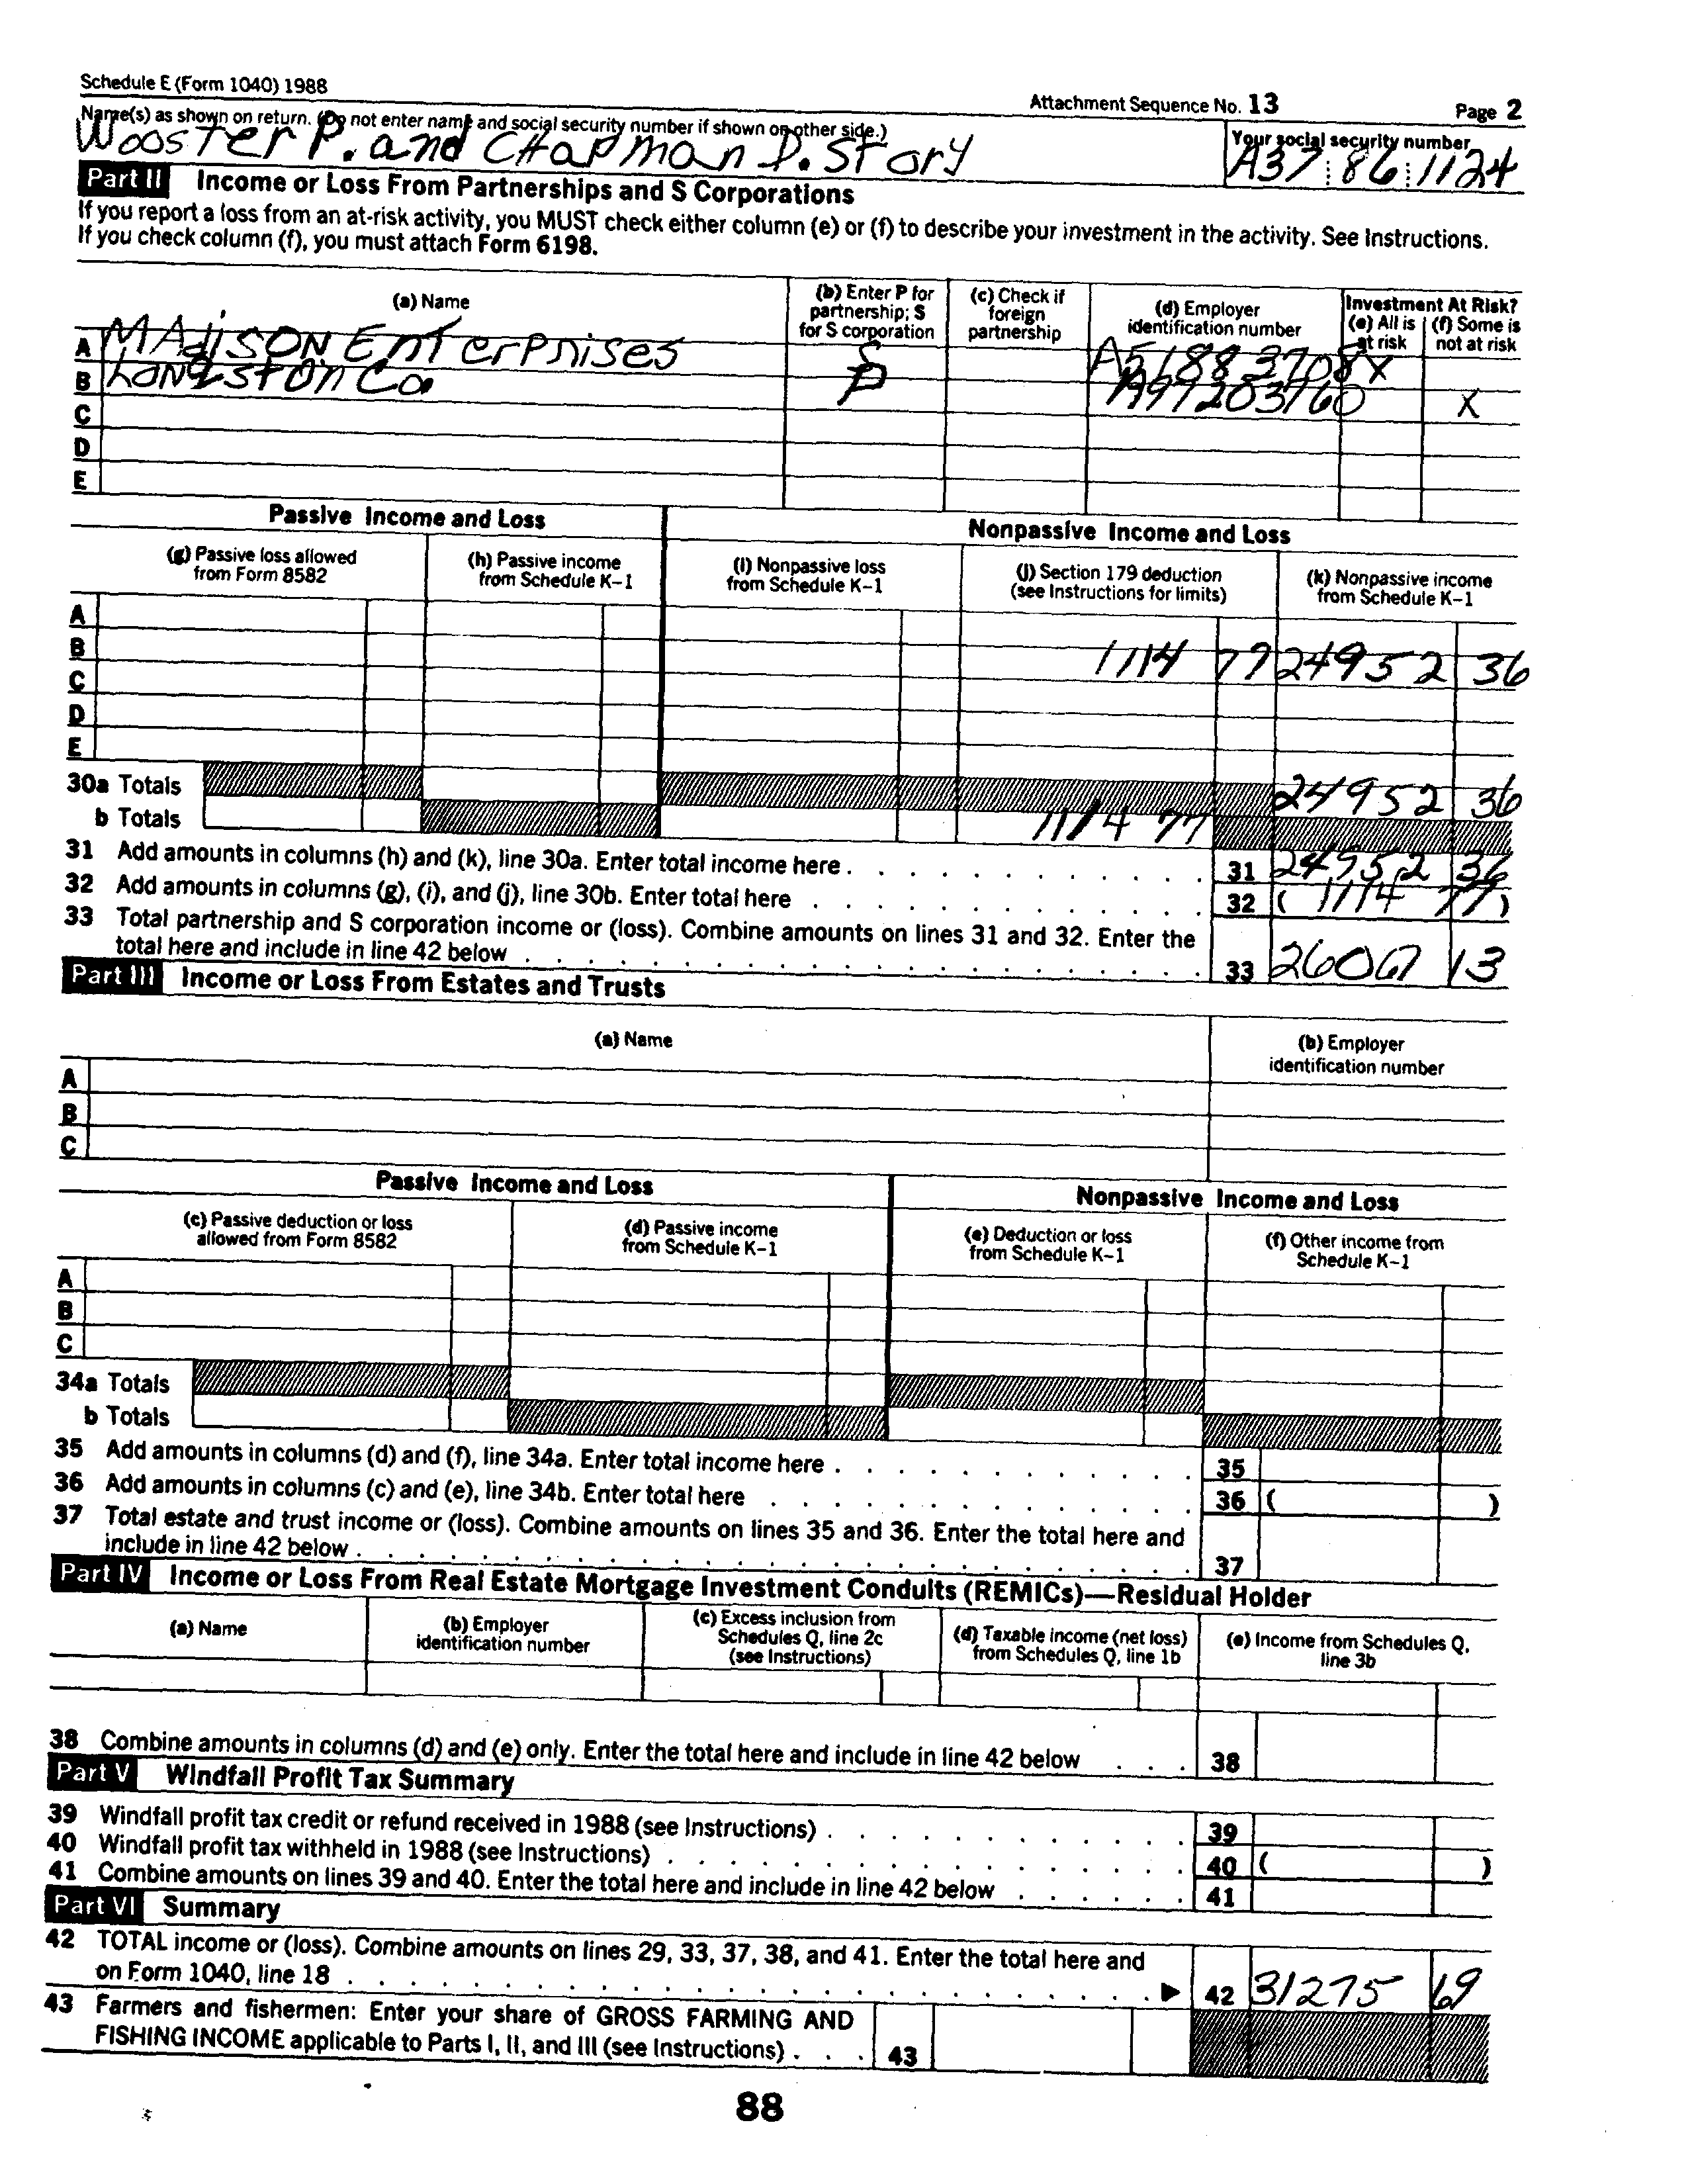 Schedule E (Form 1040) 1988
Attachment Sequence No. 13
Page 2
Name(s) as shown on return. (Do not enter name and social security number if shown on other side.)
Your social security number
Wooster P. and Chapman D. Story
A37 86 1124
Part II Income or Loss From Partnerships and S Corporations
If you report a loss from an at-risk activity, you MUST check either column (e) or (f) to describe your investment in the activity. See Instructions.
If you check column (f), you must attach Form 6198.
(a) Name
(b) Enter P for partnership; S for S corporation
(c) Check if foreign partnership
(d) Employer identification number
Investment At Risk?
(e) All is at risk
(f) Some is not at risk
A MADISON ENTERPRISES S A51883708 X
B Langston Co P A97203760 X
C
D
E
Passive Income and Loss
Nonpassive Income and Loss
(g) Passive loss allowed from Form 8582
(h) Passive income from Schedule K-1
(i) Nonpassive loss from Schedule K-1
(j) Section 179 deduction (see Instructions for limits)
(k) Nonpassive income from Schedule K-1
A
B 1114 77 24952 36
C
D
E
30a Totals 24952 36
b Totals 1114 77
31 Add amounts in columns (h) and (k), line 30a. Enter total income here . 31 24952 36
32 Add amounts in columns (g), (i), and (j), line 30b. Enter total here 32 ( 1114 77 )
33 Total partnership and S corporation income or (loss). Combine amounts on lines 31 and 32. Enter the
total here and include in line 42 below 33 26067 13
Part III Income or Loss From Estates and Trusts
(a) Name
(b) Employer identification number
A
B
C
Passive Income and Loss
Nonpassive Income and Loss
(c) Passive deduction or loss allowed from Form 8582
(d) Passive income from Schedule K-1
(e) Deduction or loss from Schedule K-1
(f) Other income from Schedule K-1
A
B
C
34a Totals
b Totals
35 Add amounts in columns (d) and (f), line 34a. Enter total income here . 35
36 Add amounts in columns (c) and (e), line 34b. Enter total here 36 ( )
37 Total estate and trust income or (loss). Combine amounts on lines 35 and 36. Enter the total here and
include in line 42 below . 37
Part IV Income or Loss From Real Estate Mortgage Investment Conduits (REMICs)—Residual Holder
(a) Name
(b) Employer identification number
(c) Excess inclusion from Schedules Q, line 2c (see Instructions)
(d) Taxable income (net loss) from Schedules Q, line 1b
(e) Income from Schedules Q, line 3b
38 Combine amounts in columns (d) and (e) only. Enter the total here and include in line 42 below 38
Part V Windfall Profit Tax Summary
39 Windfall profit tax credit or refund received in 1988 (see Instructions) . 39
40 Windfall profit tax withheld in 1988 (see Instructions) . 40 ( )
41 Combine amounts on lines 39 and 40. Enter the total here and include in line 42 below 41
Part VI Summary
42 TOTAL income or (loss). Combine amounts on lines 29, 33, 37, 38, and 41. Enter the total here and
on Form 1040, line 18 ▶ 42 31275 69
43 Farmers and fishermen: Enter your share of GROSS FARMING AND
FISHING INCOME applicable to Parts I, II, and III (see Instructions) . 43
88